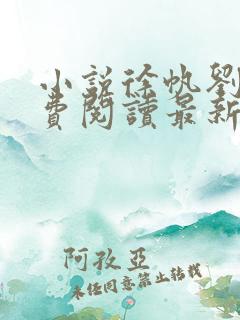 小說徐帆劉
費閱讀最新
阿孜亞
未经同意禁止转载